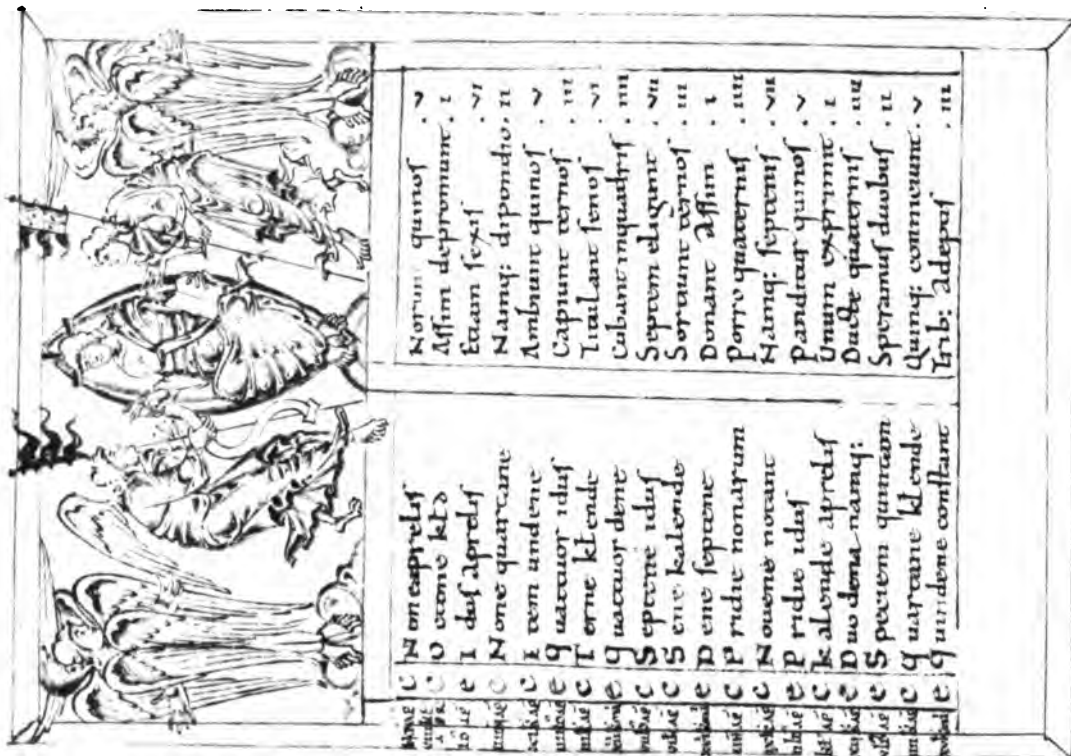 C None aprelis Norunt quinos . v
C Octone kld Assim depromunt . i
e Idus aprelis Etiam sexis . vi
C None quartane Namq: dipondio . ii
C Item undene Ambiunt quinos . v
e Quattuor idus Capiunt ternos . iii
C Terne klende Titulant senos . vi
e Quattuor dene Cubant inquadris . iiii
C Septene idus Septem eligunt . vii
C Sene kalende Sorciunt ternos . iii
e Dene septene Donant assim . i
C Pridie nonarum Porro quaternis . iiii
C Nouene notant Namq: septenis . vii
e Pridie idus Panditur quinos . v
C Kalende aprelis Unum exprimit . i
e Duodena namq: Duode quaternis . iiii
e Speciem quintam Speramus duobus . ii
C Quartane klende Quinq: coniciunt . v
e Quindene constant Trib: adeptis . iii